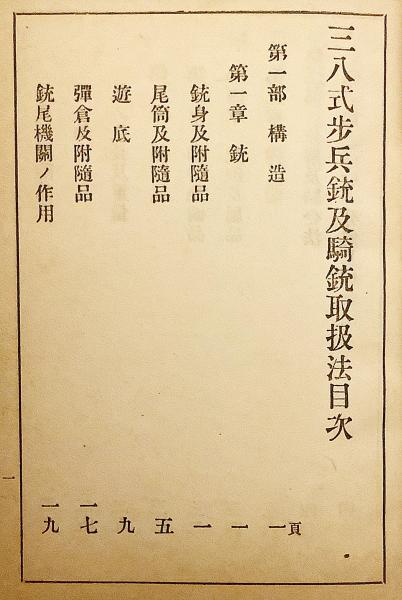 三八式步兵銃及騎銃取扱法目次
第一部 構造 一頁
第一章 銃 一
銃身及附隨品 一
尾筒及附隨品 五
遊底 九
彈倉及附隨品 一七
銃尾機關ノ作用 一九
一